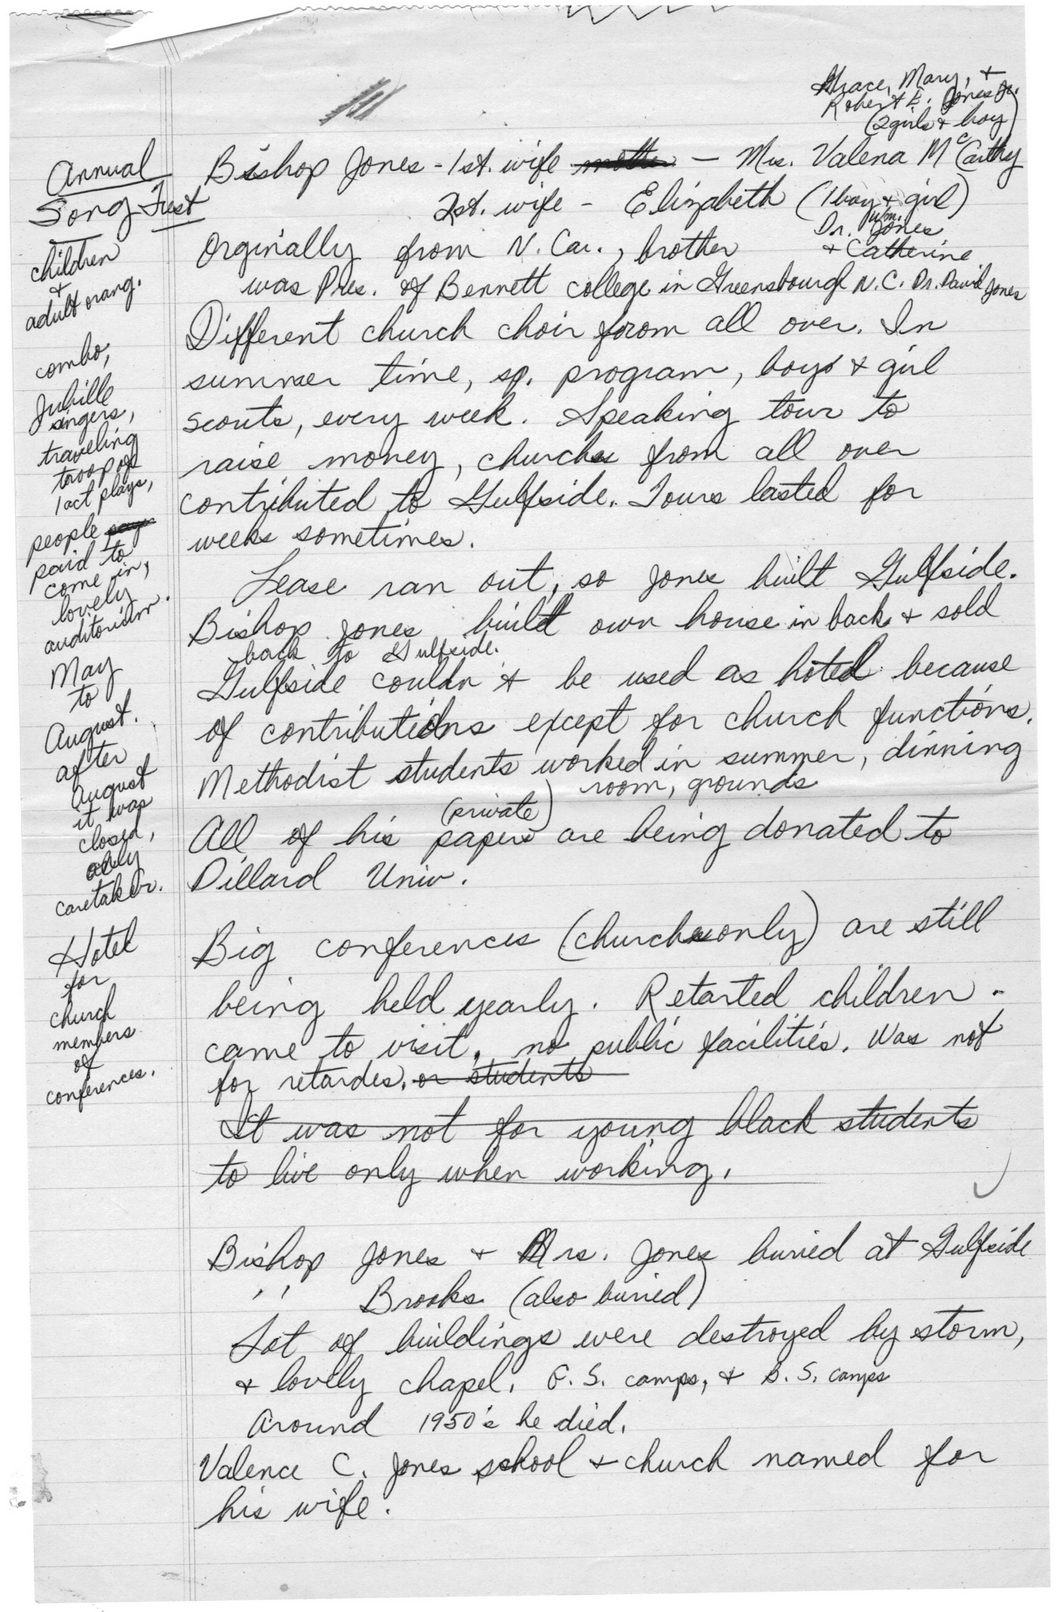 Grace, Mary, +
Robert E. Jones Jr.
(2 girls + boy)
Bishop Jones - 1st. wife mother — Mrs. Valena McCarthy
2st. wife - Elizabeth (1 boy + girl)
Dr. Wm. Jones
+ Catherine
Orginally from N. Car., brother
was Pres. of Bennett college in Greensbourgh N.C. Dr. David Jones
Different church choir from all over. In
summer time, sp. program, boys + girl
scouts, every week. Speaking tour to
raise money, churches from all over
contributed to Gulfside. Tours lasted for
weeks sometimes.
Lease ran out, so Jones built Gulfside.
Bishop Jones build own house in back + sold
back to Gulfside.
Gulfside couldn't be used as hotel because
of contributions except for church functions.
Methodist students worked in summer, dinning
room, grounds
All of his (private) papers are being donated to
Dillard Univ.
Big conferences (churches only) are still
being held yearly. Retarted children -
came to visit, no public facilities. Was not
for retardes. or students
It was not for young black students
to live only when working.
Bishop Jones + Mrs. Jones buried at Gulfside
" Brooks (also buried)
Lot of buildings were destroyed by storm,
+ lovely chapel. G. S. camps, + B. S. camps
Around 1950's he died.
Valence C. Jones school + church named for
his wife.
Annual
Song Fest
children
+
adult orang.
combo,
Jubille
singers,
traveling
troop of
1 act plays,
people pays
paid to
come in,
lovely
auditorium.
May
to
August.
after
August
it was
closed,
only
caretaker.
Hotel
for
church
members
of
conferences.